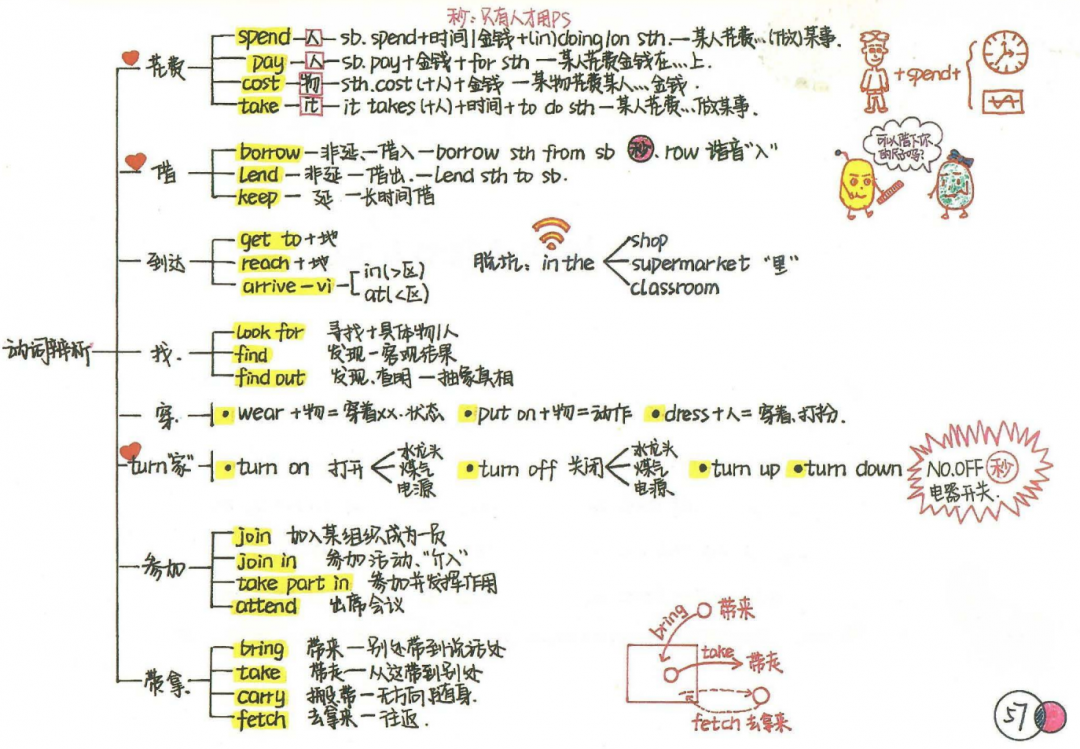 动词辨析
秒:只有人才用PS
花费
spend—人—sb. spend+时间/金钱+(in)doing/on sth.—某人花费…(做)某事.
pay—人—sb. pay+金钱+for sth—某人花费金钱在…上.
cost—物—sth.cost(+人)+金钱—某物花费某人…金钱.
take—it—it takes(+人)+时间+to do sth—某人花费…做某事.
+spend+
借
borrow—非延、—借入—borrow sth from sb 秒. row 谐音"入"
Lend—非延—借出.—Lend sth to sb.
keep—延—长时间借
可以借下你的尺子吗?
到达
get to+地
reach+地
arrive-vi
in(>区)
at(<区)
脱坑: in the
shop
supermarket "里"
classroom
找.
Look for 寻找+具体物/人
find 发现—客观结果
find out 发现.查明—抽象真相
穿.
•wear+物=穿着xx.状态 •put on+物=动作 •dress+人=穿着.打扮.
turn"家"
•turn on 打开
水龙头
煤气
电源
•turn off 关闭
水龙头
煤气
电源
•turn up •turn down
NO.OFF 秒
电器开关.
参加
join 加入某组织成为一员
join in 参加活动、"介入"
take part in 参加并发挥作用
attend 出席会议
带拿
bring 带来—别处带到说话处
take 带走—从这带到别处
carry 搬.带—无方向.随身.
fetch 去拿来—往返.
bring 带来
take 带走
fetch 去拿来
57